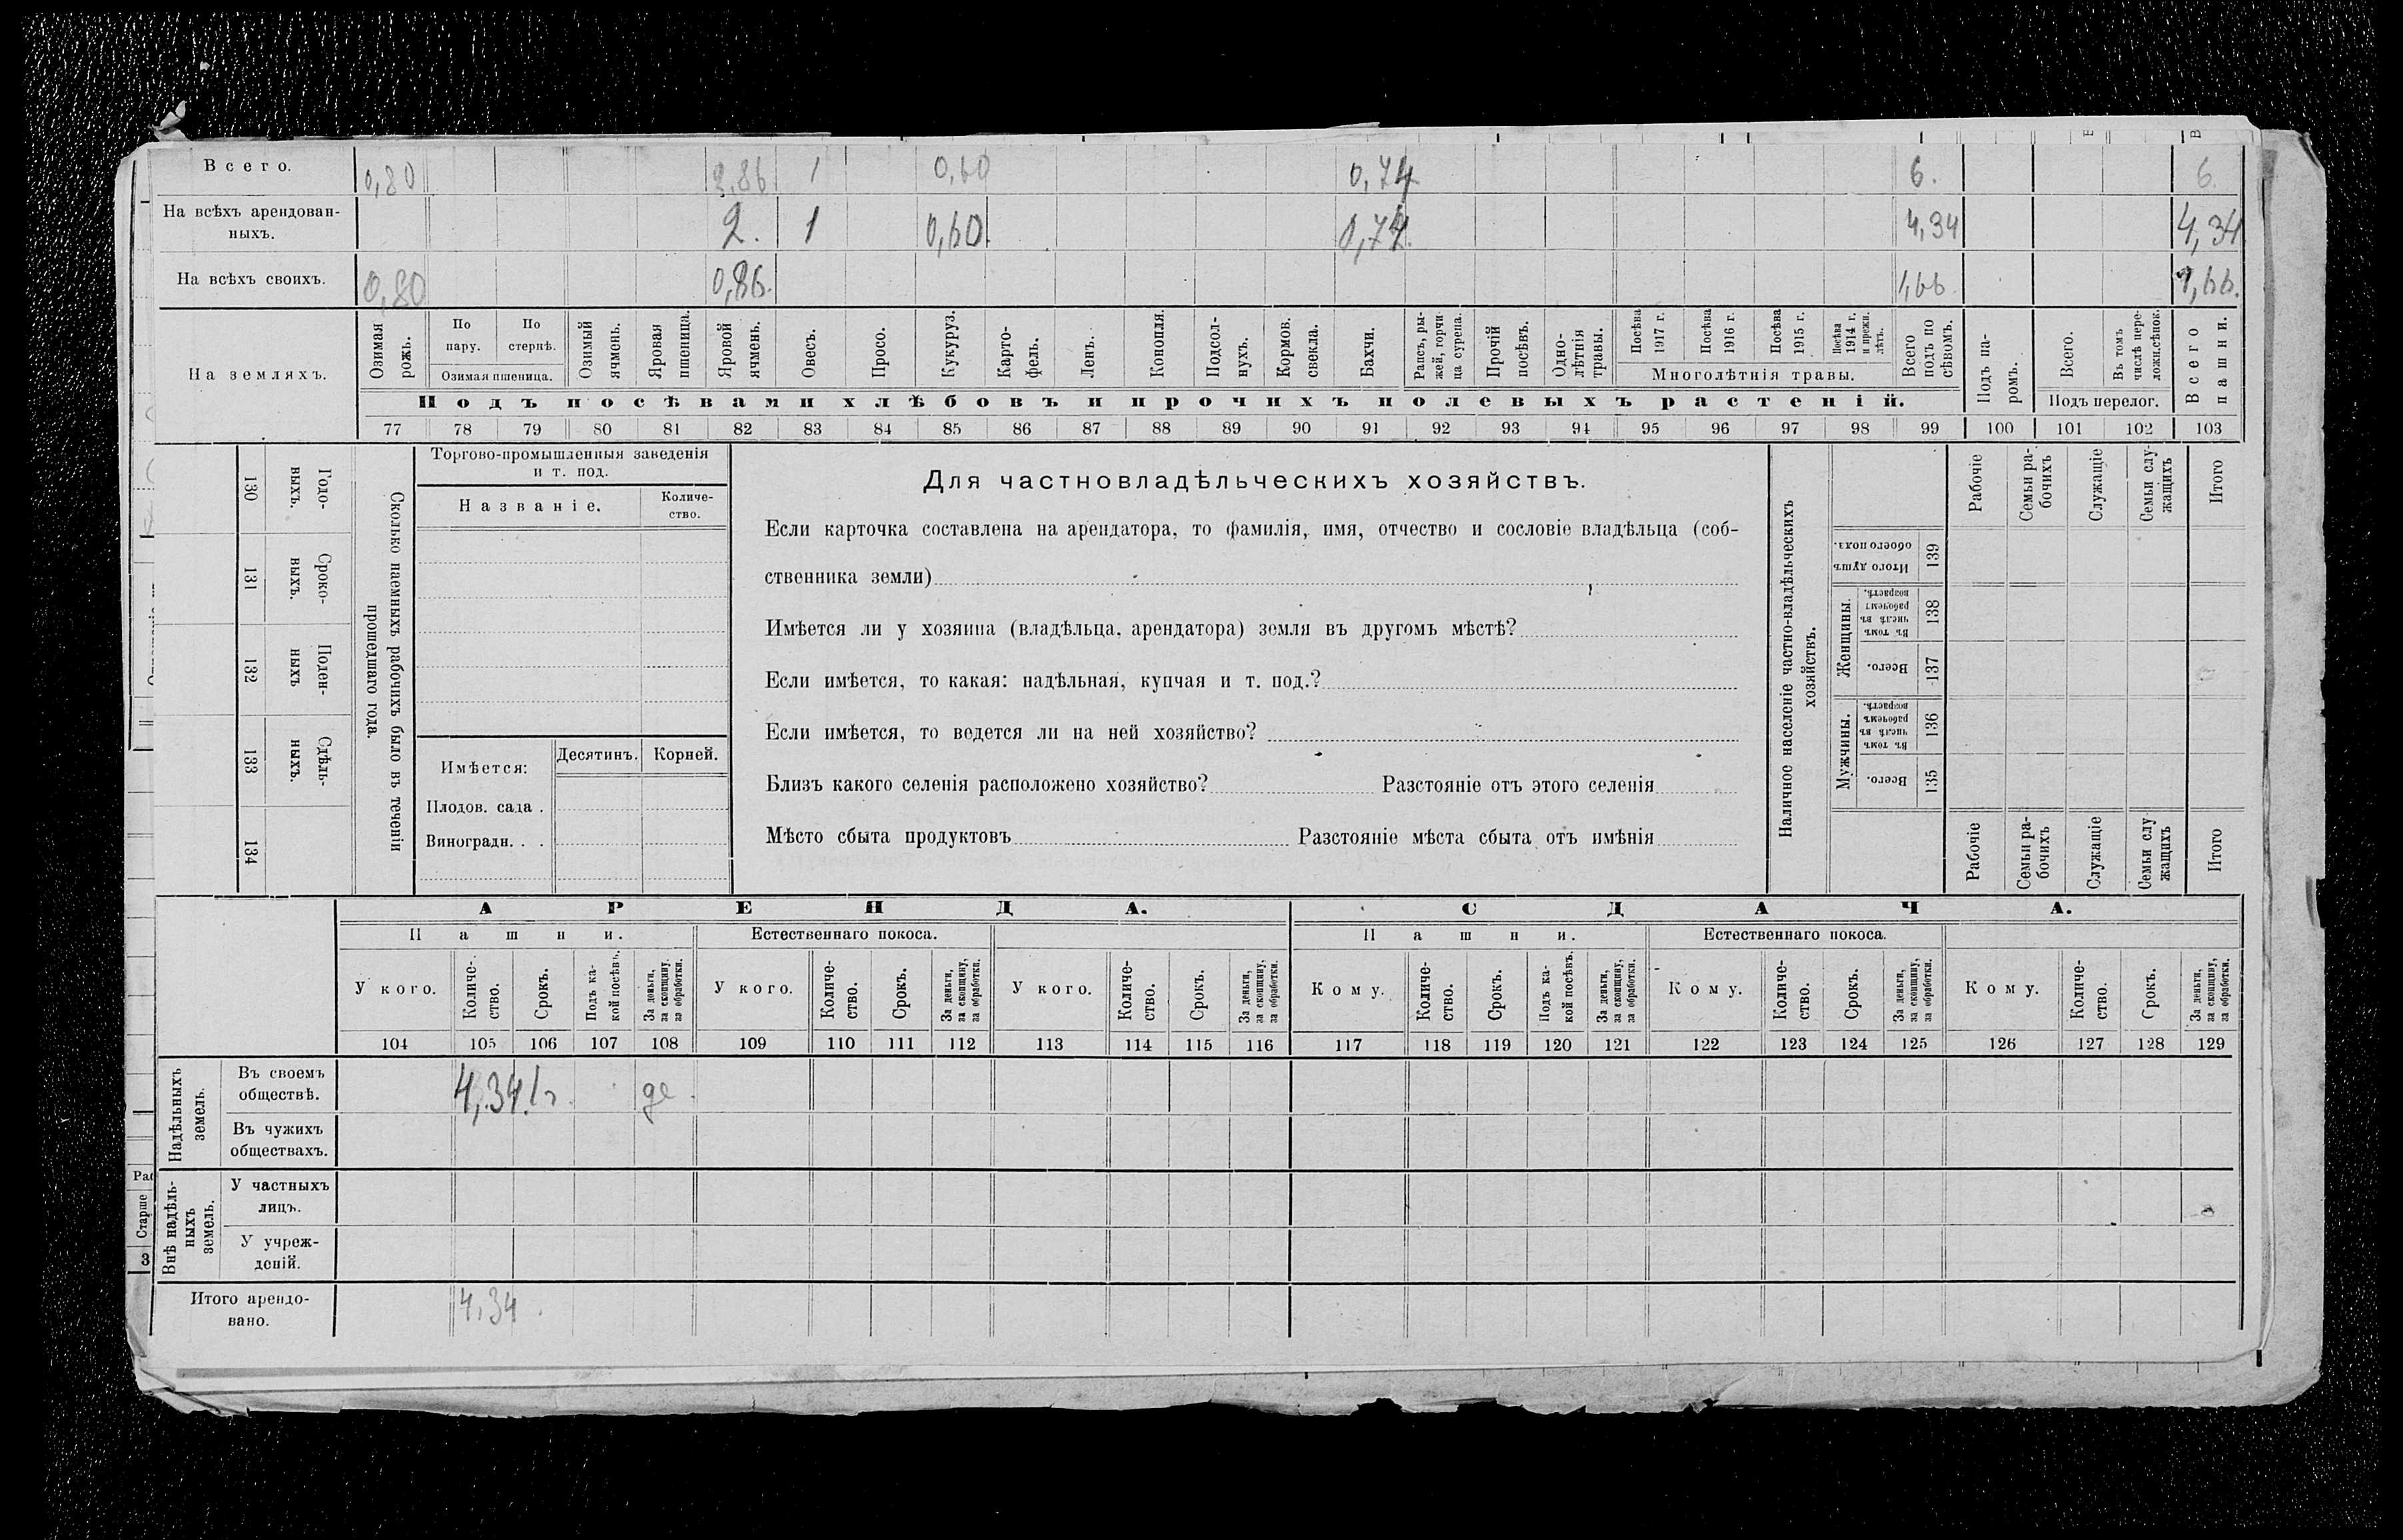 Всего. 0,80 2,86 1 0,60 0,74 6. 6.
На всѣхъ арендован-
ныхъ. 2. 1 0,60. 0,74. 4,34 4,34
На всѣхъ своихъ. 0,80 0,86. 1,66 1,66.
На земляхъ.
Озимая рожь.
По пару.
По стернѣ.
Озимая пшеница.
Озимый ячмень.
Яровая пшеница.
Яровой ячмень.
Овесъ.
Просо.
Кукуруз.
Карто-
фель.
Ленъ.
Конопля.
Подсол-
нухъ.
Кормов. свекла.
Бахчи.
Рапсъ, ры-
жей, горчи-
ца сурепа.
Прочій посѣвъ.
Одно-
лѣтнія травы.
Посѣва 1917 г.
Посѣва 1916 г.
Посѣва 1915 г.
Посѣва 1914 г. и прежн. лѣтъ.
Многолѣтнія травы.
Всего подъ по
сѣвомъ.
Подъ па-
ромъ.
Всего.
Въ томъ числѣ пере-
ложн.сѣнок.
Подъ перелог.
Всего пашни.
Подъ посѣвами хлѣбовъ и прочихъ полевыхъ растеній.
77 78 79 80 81 82 83 84 85 86 87 88 89 90 91 92 93 94 95 96 97 98 99 100 101 102 103
130 Годо-
ныхъ.
131 Сроко-
ныхъ.
132 Поден-
ныхъ
133 Сдѣль-
ныхъ.
134
Сколько наемныхъ рабочихъ было въ теченіи
прошедшаго года.
Торгово-промышленныя заведенія
и т. под.
Названіе.
Количе-
ство.
Имѣется:
Десятинъ.
Корней.
Плодов. сада .
Виноградн. . .
Для частновладѣльческихъ хозяйствъ.
Если карточка составлена на арендатора, то фамилія, имя, отчество и сословіе владѣльца (соб-
ственника земли)
Имѣется ли у хозяина (владѣльца, арендатора) земля въ другомъ мѣстѣ?
Если имѣется, то какая: надѣльная, купчая и т. под.?
Если имѣется, то ведется ли на ней хозяйство?
Близъ какого селенія расположено хозяйство? Разстояніе отъ этого селенія
Мѣсто сбыта продуктовъ Разстояніе мѣста сбыта отъ имѣнія
Наличное населеніе частно-владѣльческихъ
хозяйствъ.
Рабочіе
Семьи ра-
бочихъ
Служащіе
Семьи слу-
жащихъ
Итого
Итого душъ
обоего пола.
139
Женщины.
Въ томъ числѣ въ рабочемъ возрастѣ.
138
Всего.
137
Мужчины.
Въ томъ числѣ въ рабочемъ возрастѣ.
136
Всего.
135
Рабочіе
Семьи ра-
бочихъ
Служащіе
Семьи слу
жащихъ
Итого
АРЕНДА. СДАЧА.
Пашни. Естественнаго покоса. Пашни. Естественнаго покоса.
У кого.
Количе-
ство.
Срокъ.
Подъ ка-
кой посѣвъ.
За деньги,
за скопщину,
за обработки.
У кого.
Количе-
ство.
Срокъ.
За деньги,
за скопщину,
за обработки.
У кого.
Количе-
ство.
Срокъ.
За деньги,
за скопщину,
за обработки.
Кому.
Количе-
ство.
Срокъ.
Подъ ка-
кой посѣвъ.
За деньги,
за скопщину,
за обработки.
Кому.
Количе-
ство.
Срокъ.
За деньги,
за скопщину,
за обработки.
Кому.
Количе-
ство.
Срокъ.
За деньги,
за скопщину,
за обработки.
104 105 106 107 108 109 110 111 112 113 114 115 116 117 118 119 120 121 122 123 124 125 126 127 128 129
Надѣльныхъ
земель.
Въ своемъ
обществѣ. 4,34 1г. де.
Въ чужихъ
обществахъ.
Внѣ надѣль-
ныхъ
земель.
У частныхъ
лицъ.
У учреж-
деній.
Итого арендо-
вано. 4,34
Старше
3